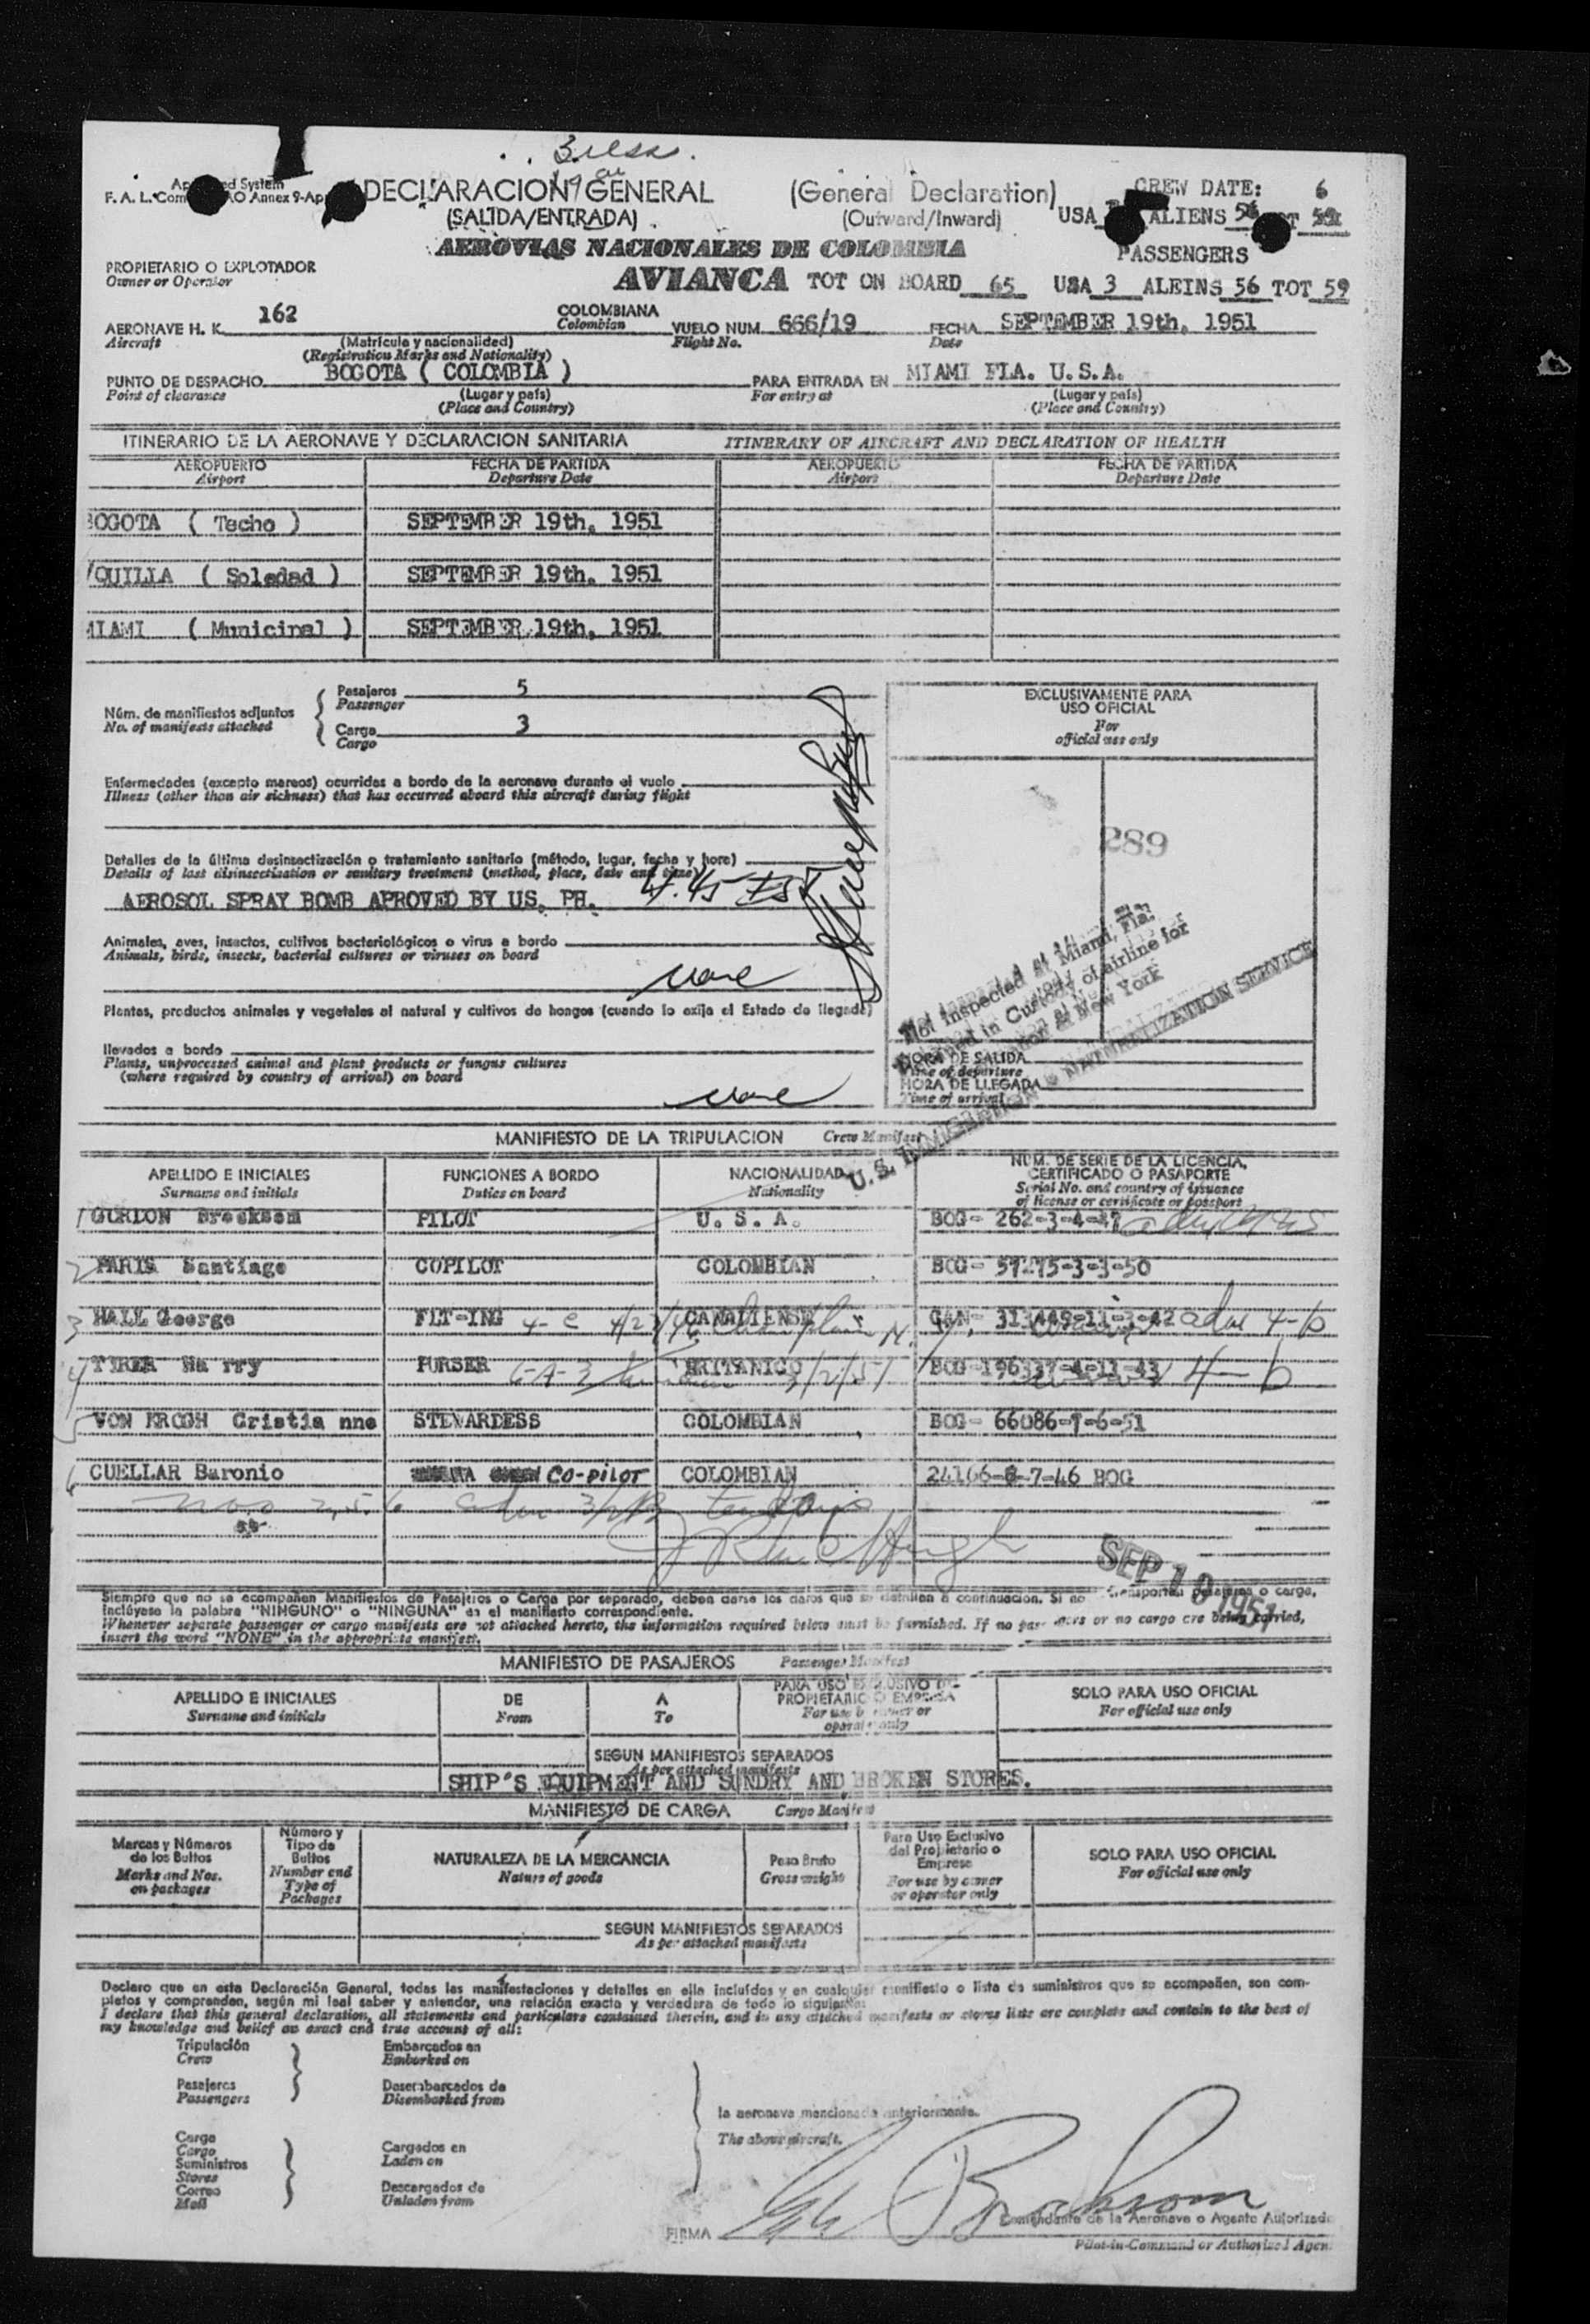 3 USA.
Ap ed System
F. A. L. Com AO Annex 9-Ap
DECLARACION GENERAL (General Declaration)
(SALIDA/ENTRADA) (Outward/Inward)
CREW DATE: 6
USA ALIENS 56 59
AEROVIAS NACIONALES DE COLOMBIA
PASSENGERS
PROPIETARIO O EXPLOTADOR
Owner or Operator
AVIANCA TOT ON BOARD 65 USA 3 ALEINS 56 TOT 59
AERONAVE H. K. 162 COLOMBIANA VUELO NUM. 666/19 FECHA SEPTEMBER 19th, 1951
Aircraft Colombian Flight No. Date
(Matrícula y nacionalidad)
(Registration Marks and Nationality)
PUNTO DE DESPACHO BOGOTA ( COLOMBIA ) PARA ENTRADA EN MIAMI FLA. U.S.A.
Point of clearance (Lugar y país) For entry at (Lugar y país)
(Place and Country) (Place and Country)
ITINERARIO DE LA AERONAVE Y DECLARACION SANITARIA ITINERARY OF AIRCRAFT AND DECLARATION OF HEALTH
AEROPUERTO FECHA DE PARTIDA AEROPUERTO FECHA DE PARTIDA
Airport Departure Date Airport Departure Date
BOGOTA ( Techo ) SEPTEMBER 19th, 1951
/QUILLA ( Soledad ) SEPTEMBER 19th, 1951
MIAMI ( Municipal ) SEPTEMBER 19th, 1951
Núm. de manifiestos adjuntos
No. of manifests attached
Pasajeros 5
Passenger
Cargo 3
Cargo
EXCLUSIVAMENTE PARA
USO OFICIAL
For
official use only
Enfermedades (excepto mareos) ocurridas a bordo de la aeronave durante el vuelo
Illness (other than air sickness) that has occurred aboard this aircraft during flight
289
Detalles de la última desinsectización o tratamiento sanitario (método, lugar, fecha y hora)
Details of last disinsectisation or sanitary treatment (method, place, date and time)
AEROSOL SPRAY BOMB APROVED BY US. PH. 4.45 EST
Animales, aves, insectos, cultivos bacteriológicos o virus a bordo
Animals, birds, insects, bacterial cultures or viruses on board
None
Plantas, productos animales y vegetales al natural y cultivos de hongos (cuando lo exija el Estado de llegada)
llevados a bordo
Plants, unprocessed animal and plant products or fungus cultures
(where required by country of arrival) on board
None
Not Inspected at Miami, Fla.
in Custody of airline for
at New York
U.S. IMMIGRATION & NATURALIZATION SERVICE
HORA DE SALIDA
Time of departure
HORA DE LLEGADA
Time of arrival
MANIFIESTO DE LA TRIPULACION Crew Manifest
APELLIDO E INICIALES FUNCIONES A BORDO NACIONALIDAD NUM. DE SERIE DE LA LICENCIA,
CERTIFICADO O PASAPORTE
Surname and initials Duties on board Nationality Serial No. and country of issuance
of license or certificate or passport
1 GORDON PILOT U. S. A. BOG- 262-3-4-47
2 PARIS Santiago COPILOT COLOMBIAN BOG-
3 HALL George FLT-ING 4-c CANADIENSE CAN, 4-b
4 Ha rry PURSER BRITANICO 3/2/51 4-b
5 VON KROGH Cristia nne STEWARDESS COLOMBIAN BOG- 66086-7-6-51
6 CUELLAR Baronio CO-PILOT COLOMBIAN 24166-8-7-46 BOG
nos 2, 5, 6
SEP 19 1951
Siempre que no se acompañen Manifiestos de Pasajeros o Carga por separado, deben darse los datos que se detallan a continuación. Si no transportan pasajeros o carga,
inclúyase la palabra "NINGUNO" o "NINGUNA" en el manifiesto correspondiente.
Whenever separate passenger or cargo manifests are not attached hereto, the information required below must be furnished. If no passengers or no cargo are being carried,
insert the word "NONE" in the appropriate manifest.
MANIFIESTO DE PASAJEROS Passenger Manifest
APELLIDO E INICIALES DE A PARA USO EXCLUSIVO DE
PROPIETARIO O EMPRESA SOLO PARA USO OFICIAL
Surname and initials From To For use by owner or
operator only For official use only
SEGUN MANIFIESTOS SEPARADOS
As per attached manifests
SHIP'S EQUIPMENT AND SUNDRY AND BROKEN STORES.
MANIFIESTO DE CARGA Cargo Manifest
Marcas y Números
de los Bultos
Marks and Nos.
on packages
Número y
Tipo de
Bultos
Number and
Type of
Packages
NATURALEZA DE LA MERCANCIA
Nature of goods
Peso Bruto
Gross weight
Para Uso Exclusivo
del Propietario o
Empresa
For use by owner
or operator only
SOLO PARA USO OFICIAL
For official use only
SEGUN MANIFIESTOS SEPARADOS
As per attached manifests
Declaro que en esta Declaración General, todas las manifestaciones y detalles en ella incluídos y en cualquier manifiesto o lista de suministros que se acompañen, son com-
pletos y comprenden, según mi leal saber y entender, una relación exacta y verdadera de todo lo siguiente:
I declare that this general declaration, all statements and particulars contained therein, and in any attached manifests or stores lists are complete and contain to the best of
my knowledge and belief an exact and true account of all:
Tripulación Embarcados en
Crew Embarked on
Pasajeros Desembarcados de
Passengers Disembarked from
la aeronave mencionada anteriormente.
The above aircraft.
Carga
Cargo Cargados en
Suministros Laden on
Stores
Correo Descargados de
Mail Unladen from
FIRMA
Comandante de la Aeronave o Agente Autorizado
Pilot-in-Command or Authorized Agent